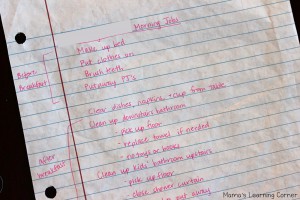 Morning Jobs
Before Breakfast
Make up bed
Put clothes on
Brush teeth
Put away PJ's
After breakfast
Clear dishes, napkin + cup from table
Clean up downstairs bathroom
- pick up floor
- replace towel if needed
- no rings or boxes
Clean up kids' bathroom upstairs
- pick up floor
- close shower curtain
put away
Mama's Learning Corner